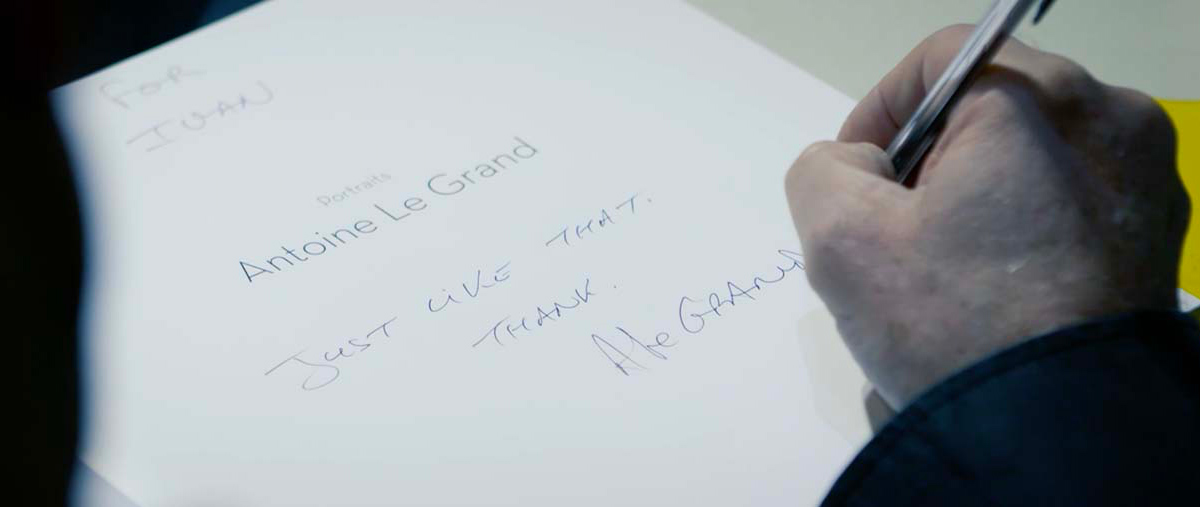 FOR
IVAN
Portraits
Antoine Le Grand
JUST LIKE THAT.
THANK.
ALe GRAND